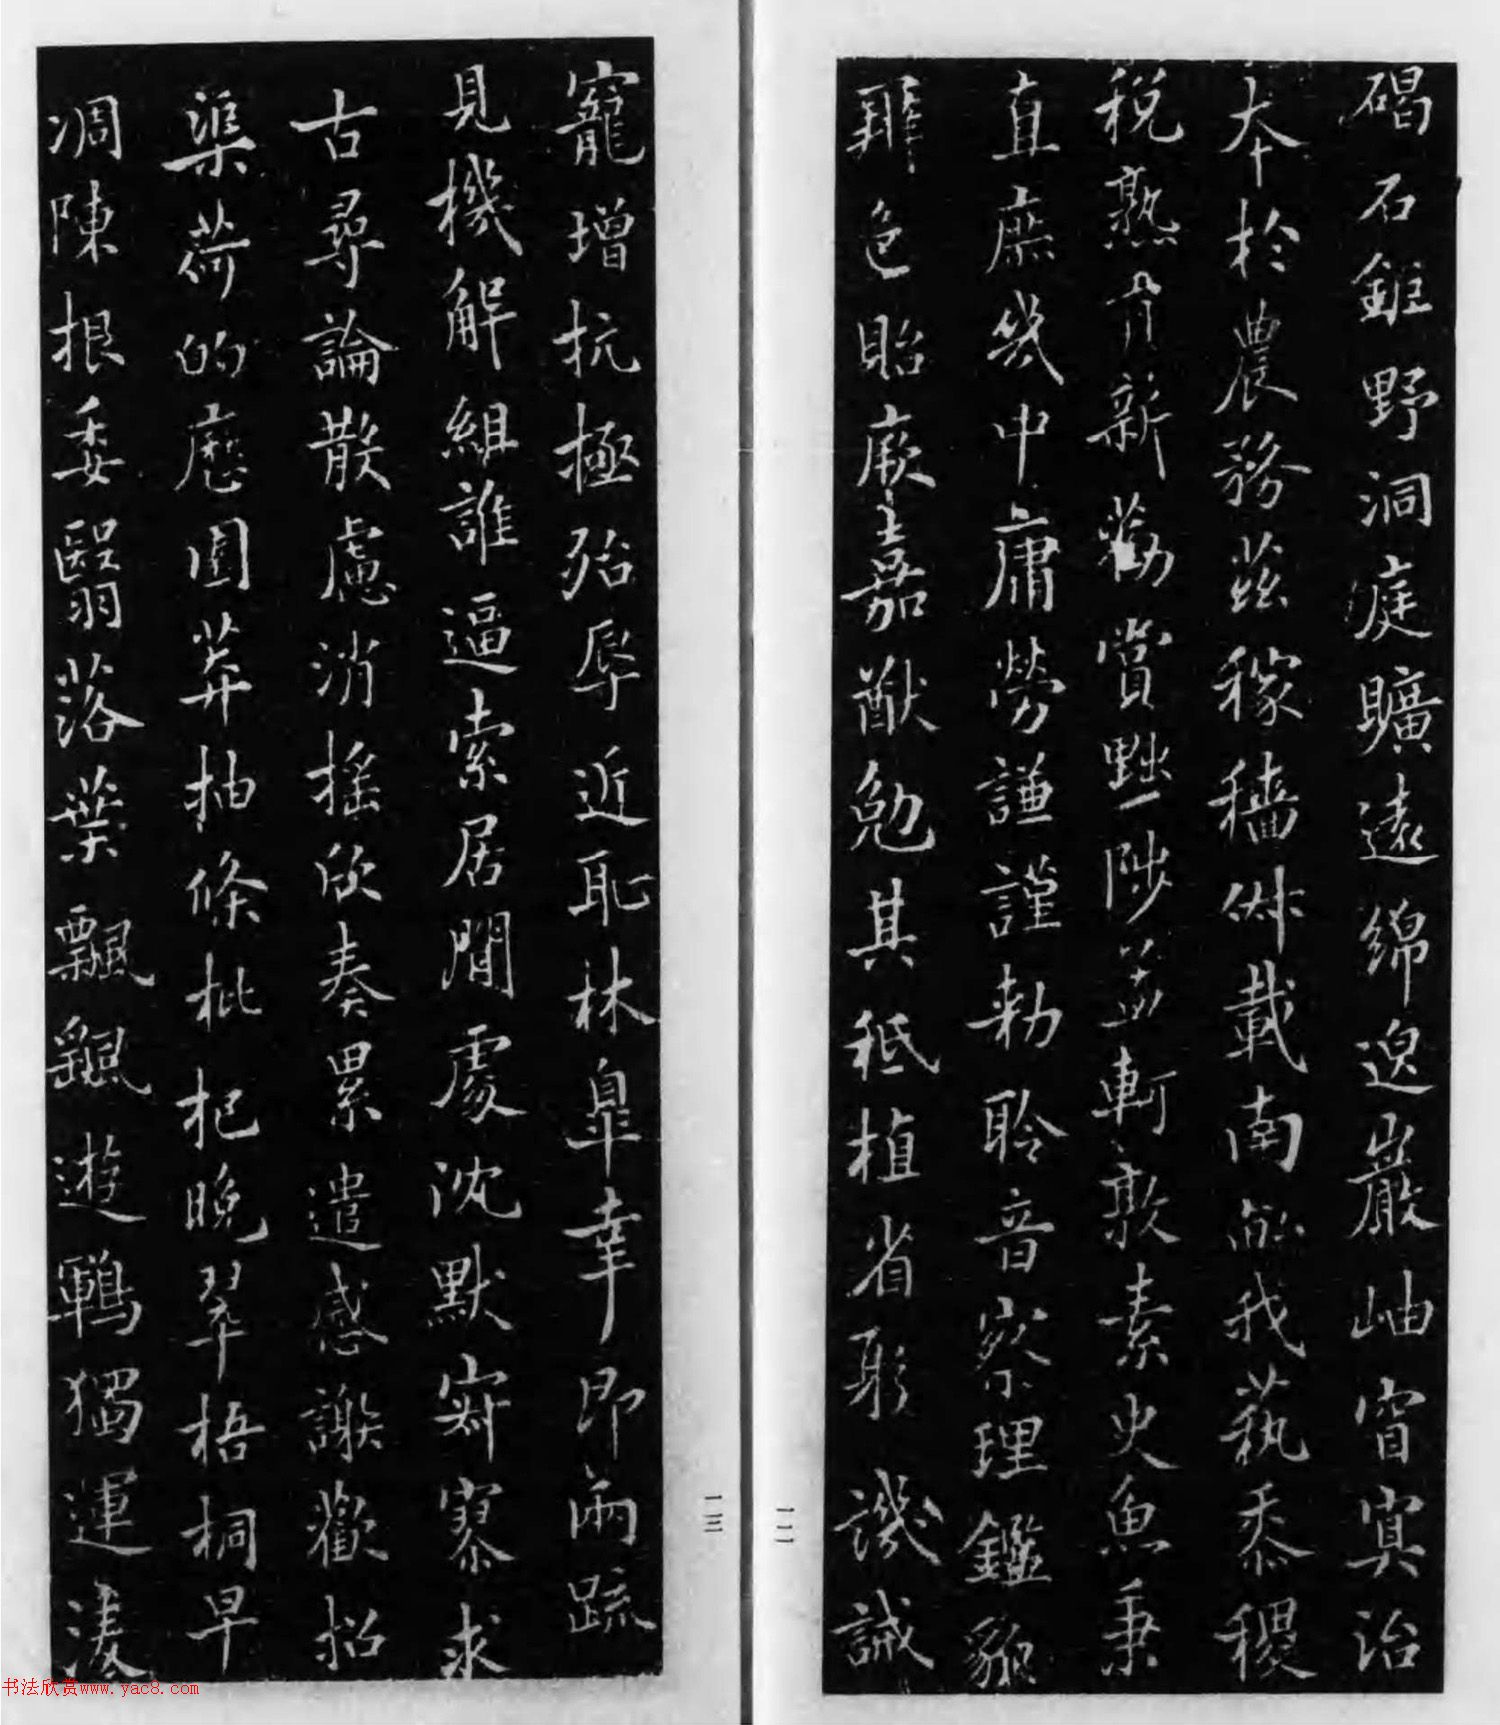 碣石鉅野洞庭曠遠綿邈巖岫窅冥治
本於農務茲稼穡俶載南畝我藝黍稷
稅熟貢新勸賞黜陟孟軻敦素史魚秉
直庶幾中庸勞謙謹勅聆音察理鑑貌
辨色貽厥嘉猷勉其祗植省躬譏誡
一二
寵增抗極殆辱近恥林皐幸即兩疏
見機解組誰逼索居閒處沈默寂寥求
古尋論散慮消搖欣奏累遣感謝歡招
渠荷的歷園莽抽條枇杷晚翠梧桐早
凋陳根委翳落葉飄颻遊鵾獨運凌
一三
书法欣赏www.yac8.com